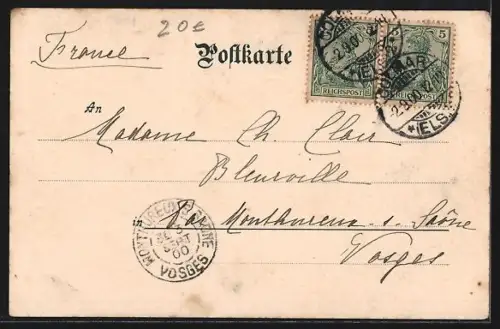 20€
France
Postkarte
REICHSPOST
REICHSPOST
5
COLMAR
-2.9.00.
*(ELS.)
An
Madame Ch. Clair
Bleurville
Par Monthureux s. Saône
Vosges
MONTHUREUX S. SAONE
SEPT
00
VOSGES